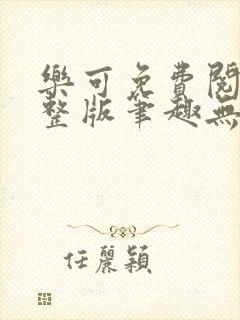 樂可免費閱
整版筆趣無
任麗穎